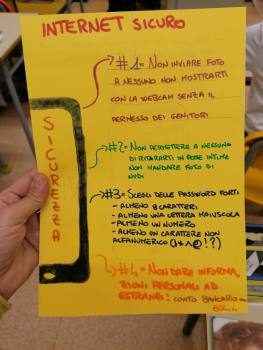 INTERNET SICURO
#1= NON INVIARE FOTO
A NESSUNO NON MOSTRARTI
CON LA WEBCAM SENZA IL
PERMESSO DEI GENITORI
SICUREZZA
#2= NON PERMETTERE A NESSUNO
DI RITRARTI IN POSE INTIME
NON MANDARE FOTO DI
NUDI
#3= SCEGLI DELLE PASSWORD FORTI
- ALMENO 8 CARATTERI
- ALMENO UNA LETTERA MAIUSCOLA
- ALMENO UN NUMERO
- ALMENO UN CARATTERE NON
ALFANUMERICO
#4= NON DARE INFORMA
ZIONI PERSONALI AD
ESTRANEI: CONTO BANCARIO